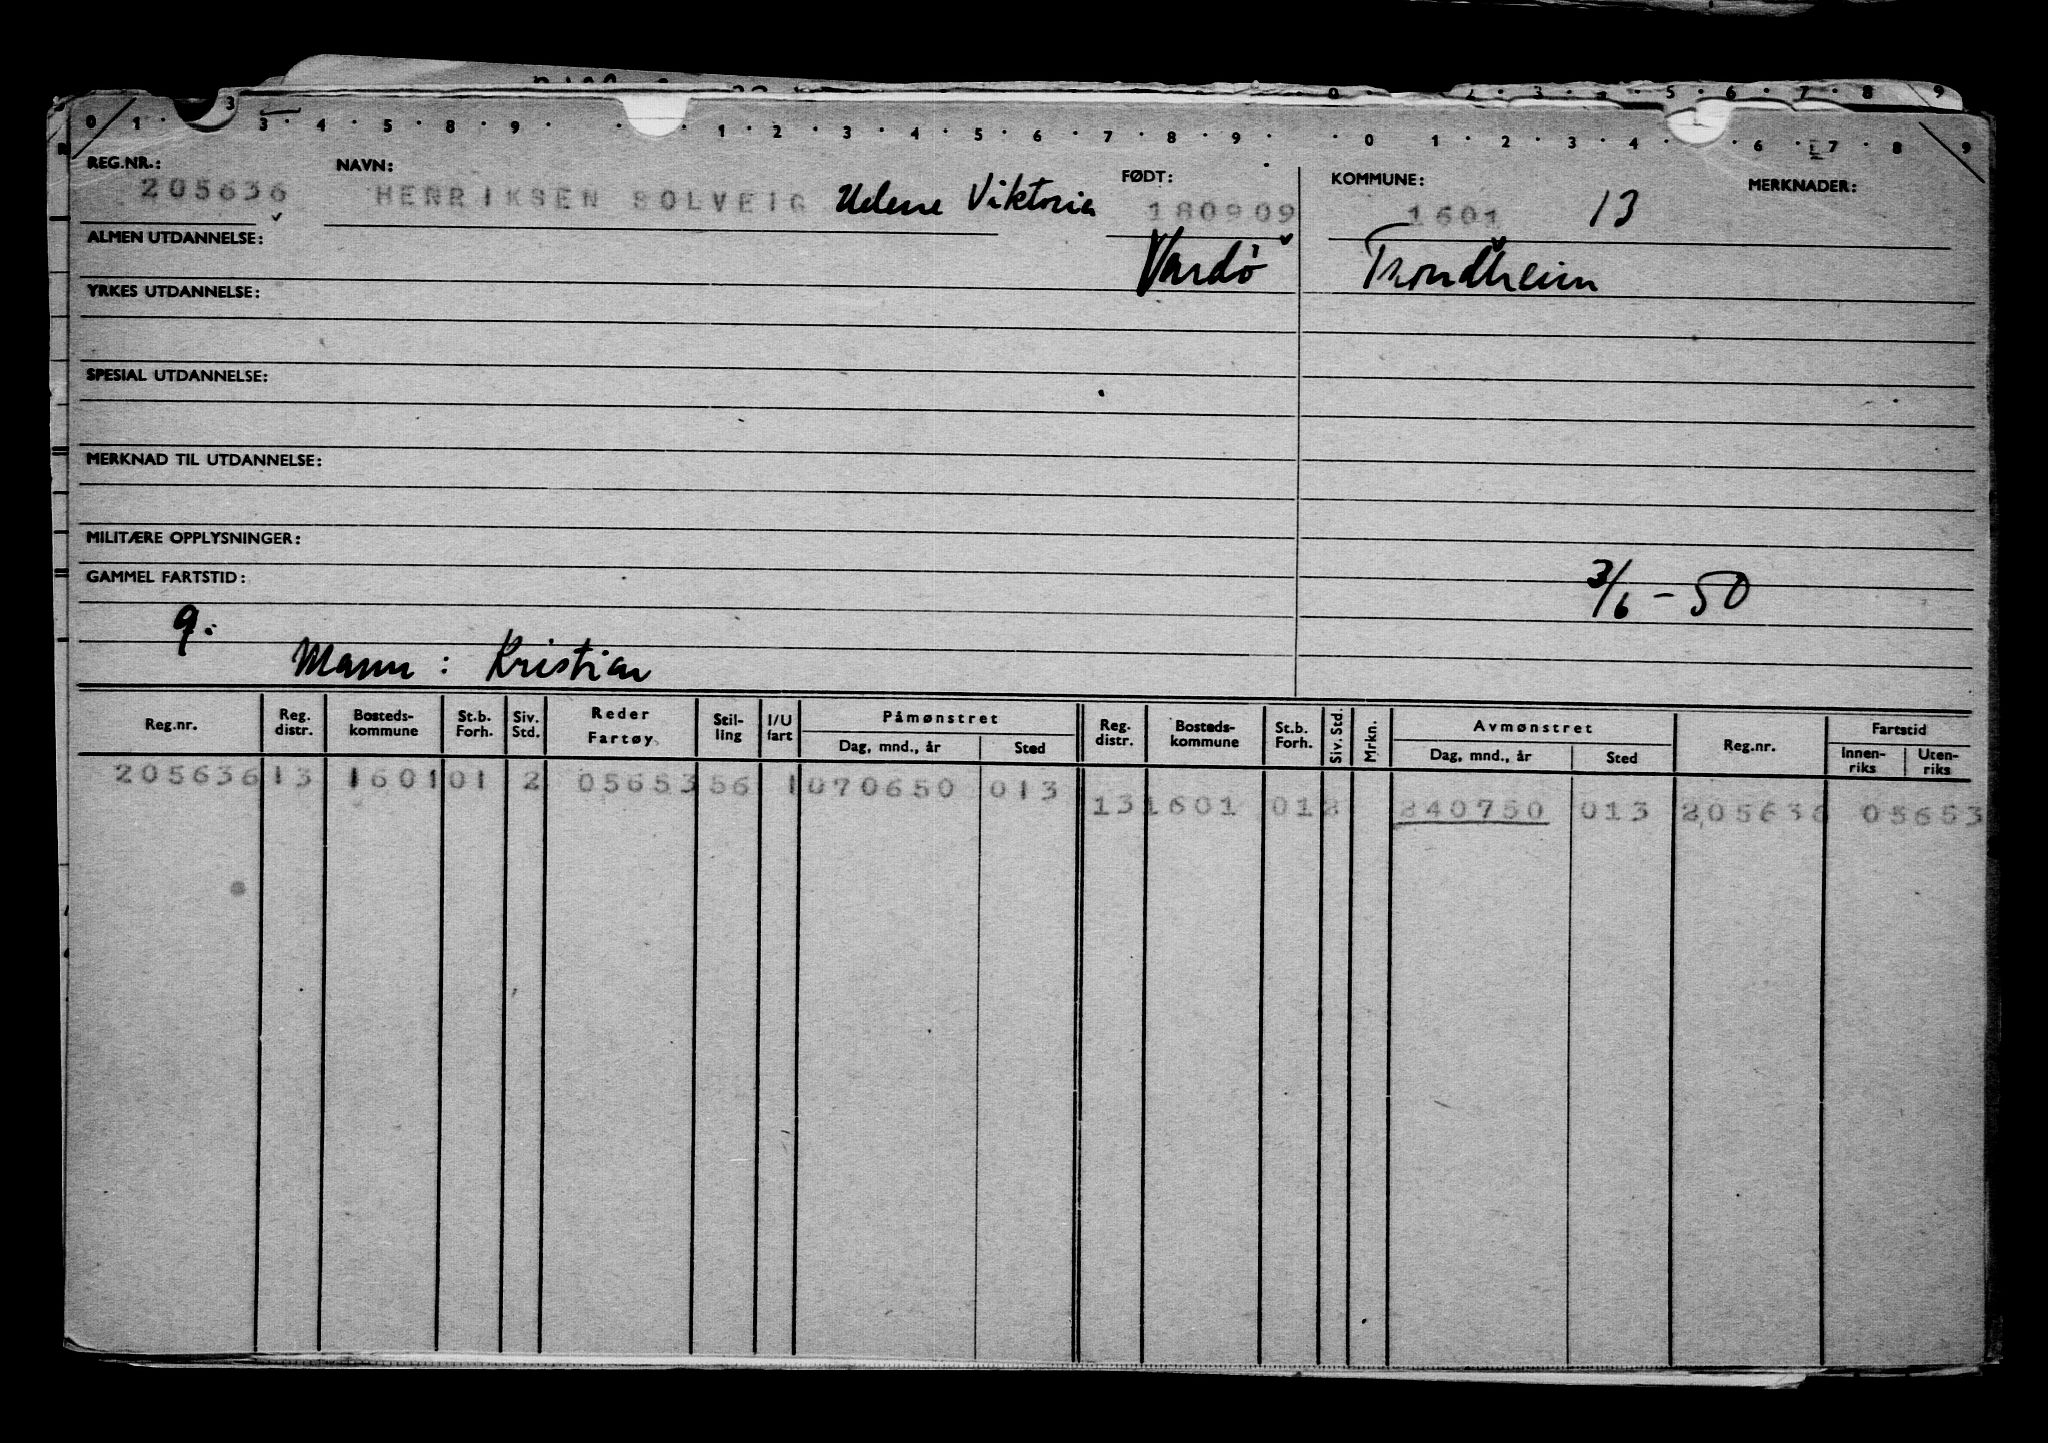 0 1 3 3 4 5 8 9 1 2 3 4 5 6 7 8 9 0 1 2 3 4 6 7 8 9
REG.NR.: NAVN: FØDT: KOMMUNE: MERKNADER:
205636 HENRIKSEN SOLVEIG Helene Viktoria 180909 1601 13
ALMEN UTDANNELSE: Vardø Trondheim
YRKES UTDANNELSE:
SPESIAL UTDANNELSE:
MERKNAD TIL UTDANNELSE:
MILITÆRE OPPLYSNINGER:
GAMMEL FARTSTID: 3/6 - 50
g.
Mann : Kristian
Reg.nr. Reg. distr. Bosteds- kommune St.b. Forh. Siv. Std. Reder Fartøy Stil- ling I/U fart Påmønstret Dag, mnd., år Sted Reg. distr. Bosteds- kommune St.b. Forh. Siv. Std. Mrkn. Avmønstret Dag, mnd., år Sted Reg.nr. Fartstid Innen- riks Uten- riks
205636 13 1601 01 2 05653 56 1 070650 013 13 1601 01 2 240750 013 205636 05653